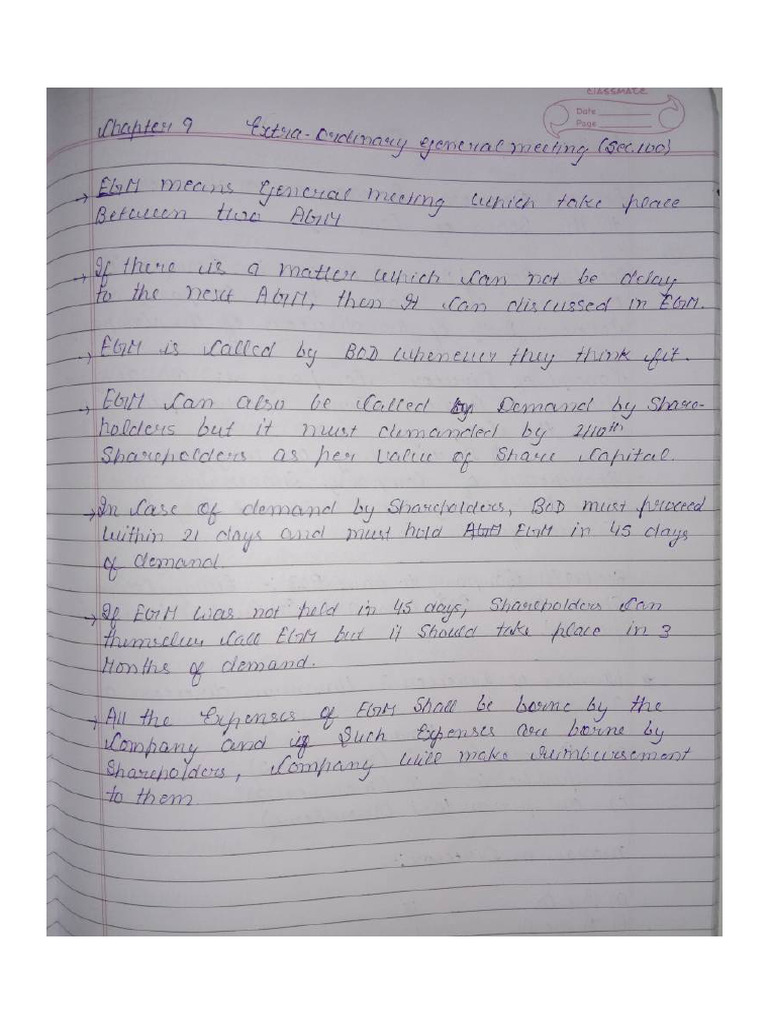 CLASSMATE
Date
Page
Chapter 9 Extra-Ordinary general meeting (Sec.100)
→ EGM means General meeting which take place
Between two AGM
→ If there is a matter which can not be delay
to the next AGM, then It can discussed in EGM.
→ EGM is called by BOD whenever they think fit.
→ EGM can also be called by Demand by Share-
holders but it must demanded by 1/10th
Shareholders as per value of Share Capital.
→ In case of demand by Shareholders, BOD must proceed
within 21 days and must hold AGM EGM in 45 days
of demand.
→ If EGM was not held in 45 days, Shareholders can
themselves call EGM but it should take place in 3
Months of demand.
→ All the Expenses of EGM Shall be borne by the
Company and if Such Expenses are borne by
Shareholders, Company will make reimbursement
to them.